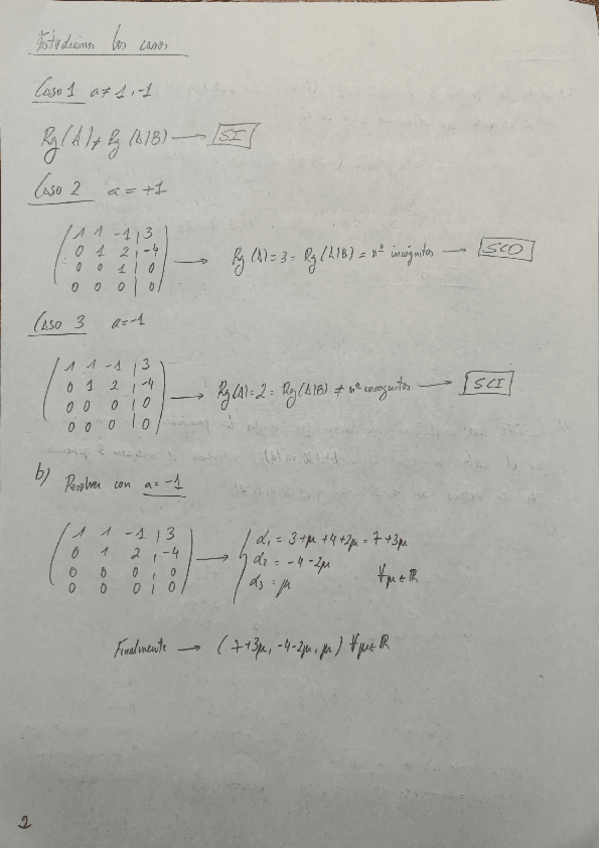 Estudiamos los casos
Caso 1 a ≠ 1, -1
Rg(A) ≠ Rg(A|B) → SI
Caso 2 a = +1
1 1 -1 | 3
0 1 2 | -4
0 0 1 | 0
0 0 0 | 0
→ Rg(A) = 3 = Rg(A|B) = nº incógnitas → SCD
Caso 3 a = -1
1 1 -1 | 3
0 1 2 | -4
0 0 0 | 0
0 0 0 | 0
→ Rg(A) = 2 = Rg(A|B) ≠ nº incógnitas → SCI
b) Resolver con a = -1
1 1 -1 | 3
0 1 2 | -4
0 0 0 | 0
0 0 0 | 0
→ α₁ = 3 + μ + 4 + 2μ = 7 + 3μ
α₂ = -4 - 2μ
α₃ = μ ∀μ ∈ ℝ
Finalmente → (7+3μ, -4-2μ, μ) ∀μ ∈ ℝ
2